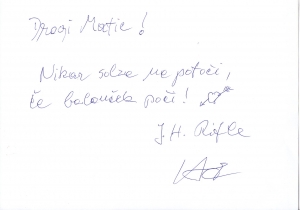 Dragi Matic!
Nikar solze ne potoči,
če balonček poči!
J.H. Rifle